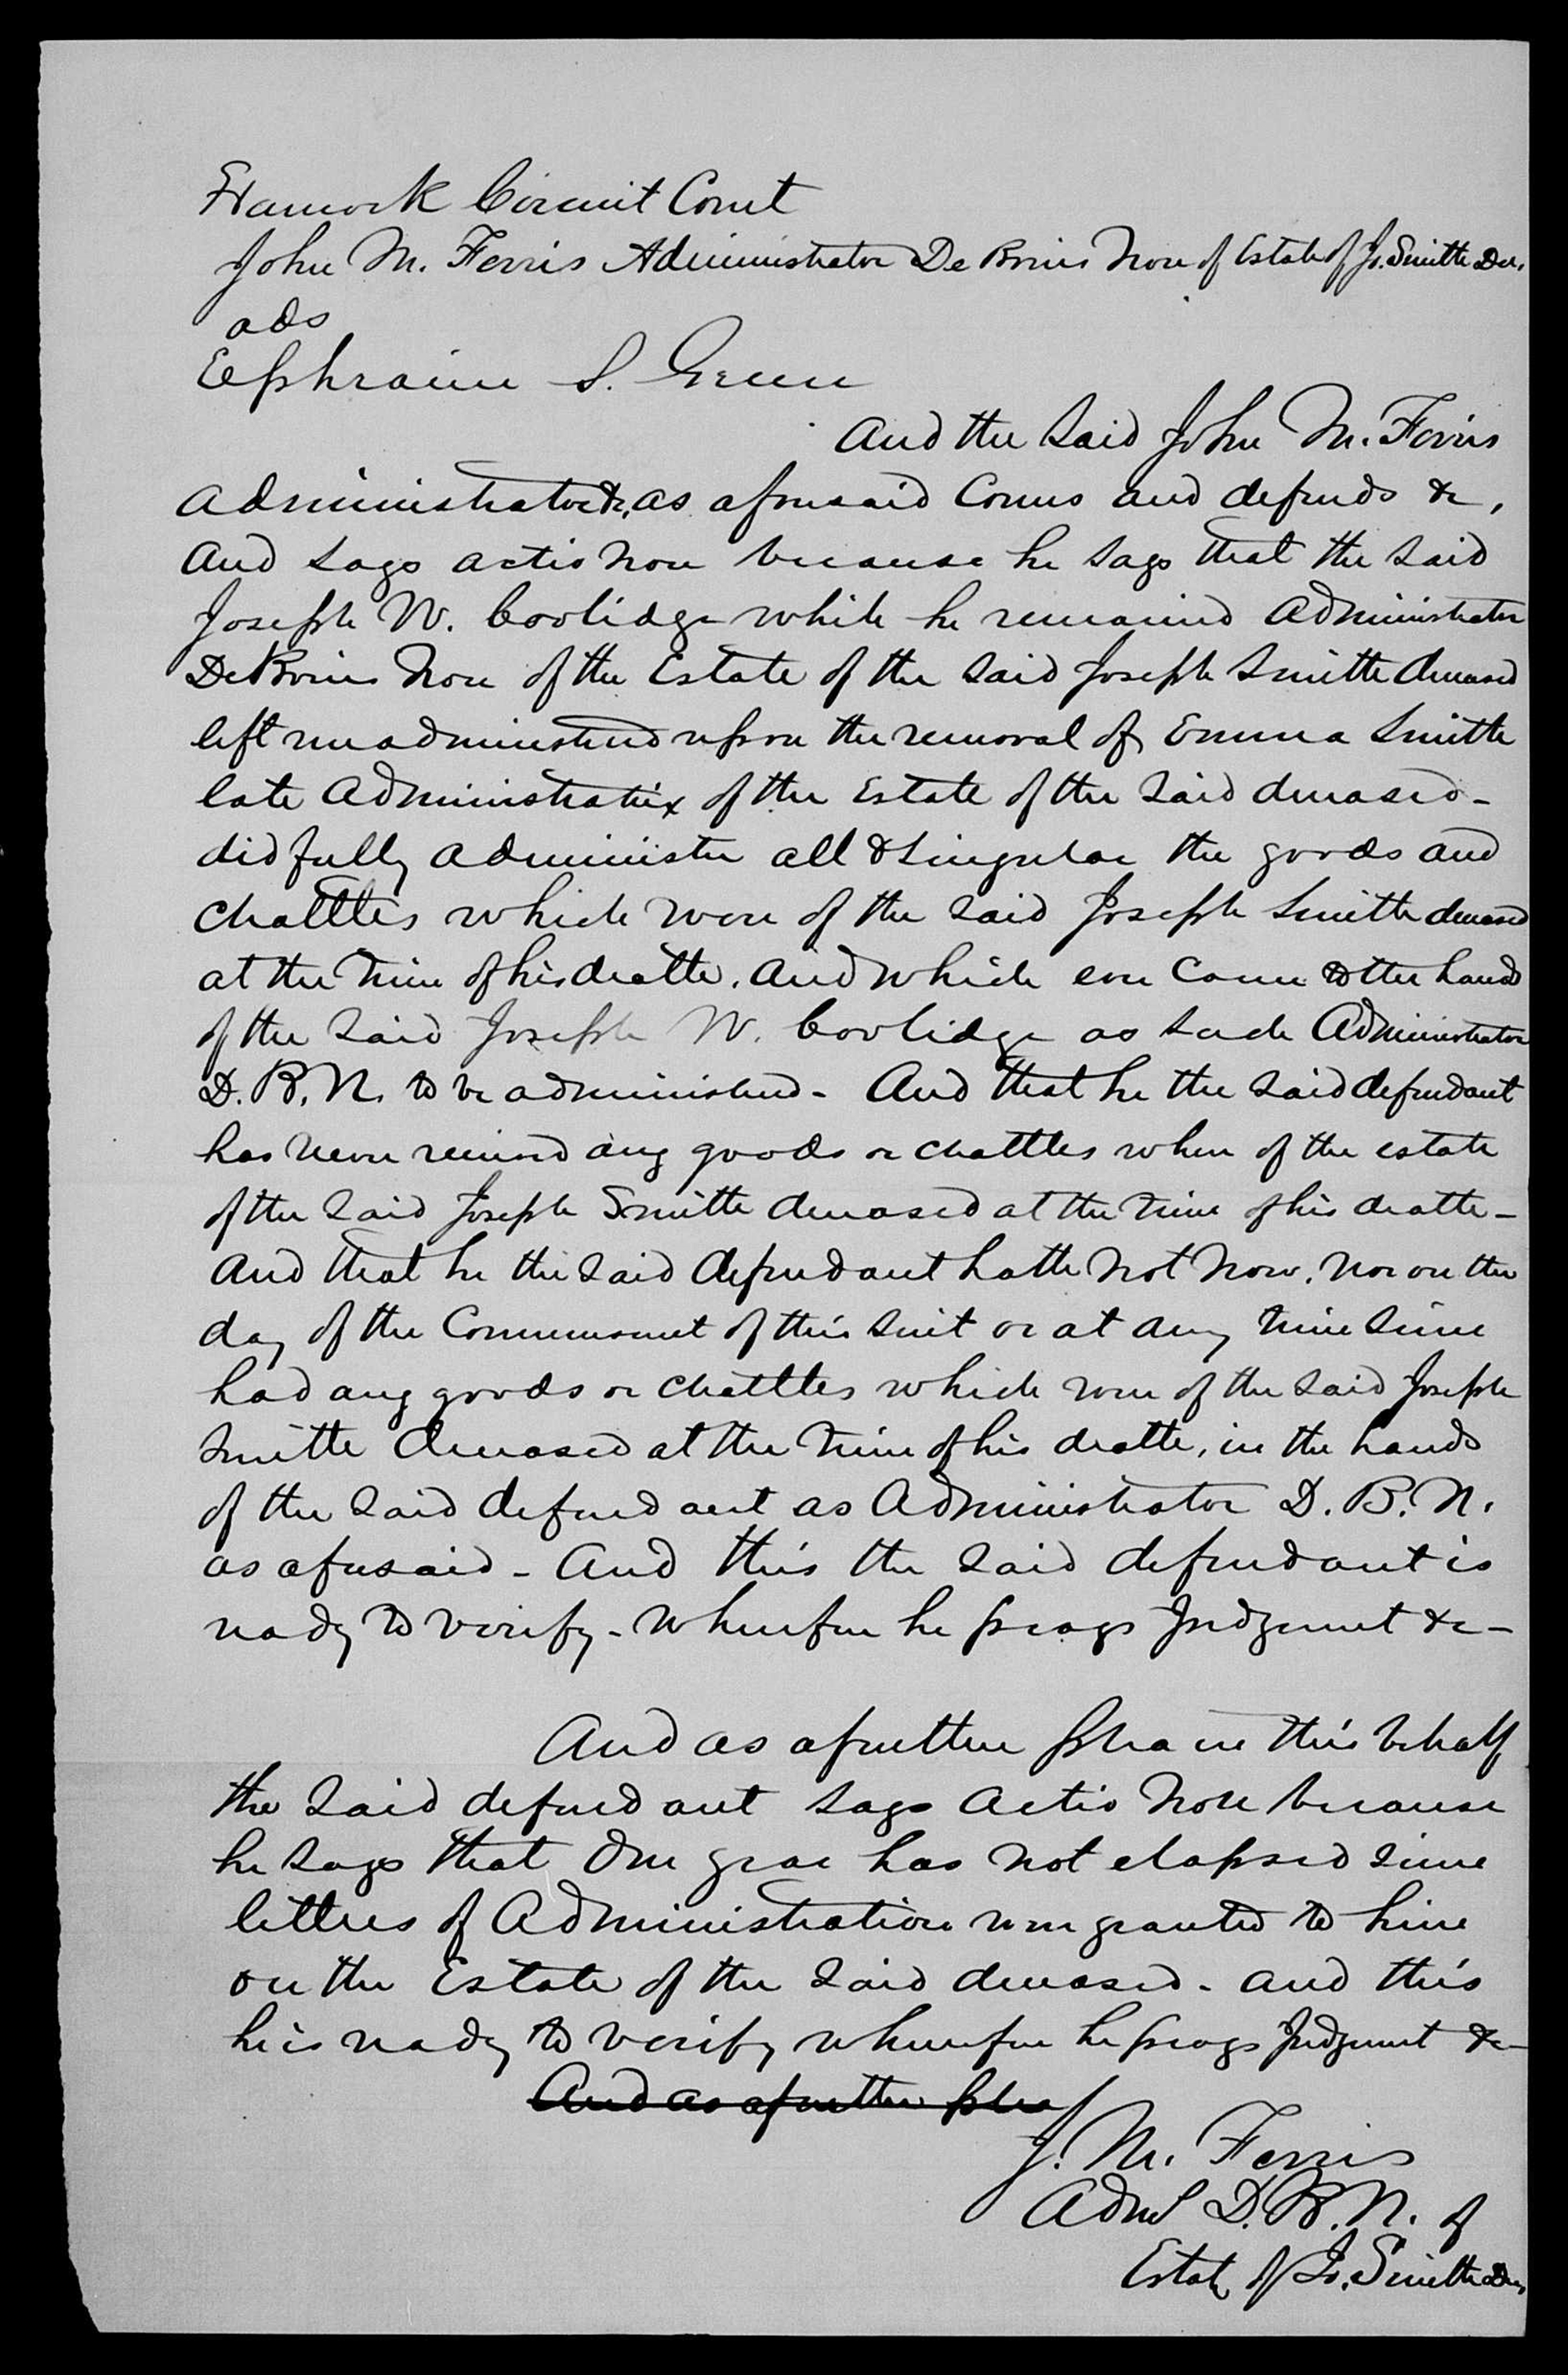 Hancock Circuit Court
John M. Ferris Administrator De Bonis Non of Estate of Js. Smith Dec.
ads
Ephraim S. Green
And the Said John M. Ferris
Administrator &c, as aforesaid Comes and defends &c,
And Says actio Non because he says that the Said
Joseph W. Coolidge while he remained Administrator
De Bonis Non of the Estate of the Said Joseph Smith deceased
left unadministered upon the removal of Emma Smith
late Administratrix of the Estate of the Said deceased -
did fully administer all & Singular the goods and
Chattles which were of the Said Joseph Smith deceased
at the time of his death, and which ever Came to the hands
of the Said Joseph W. Coolidge as such Administrator
D. B. N. to be administered - And that he the Said defendant
has never received any goods or chattles when of the estate
of the Said Joseph Smith deceased at the time of his death -
And that he the Said defendant hath Not Now, Nor on the
day of the Commencement of this Suit or at any time Since
had any goods or Chattles which were of the Said Joseph
Smith deceased at the time of his death, in the hands
of the Said defendant as Administrator D. B. N.
as aforesaid - And this the Said defendant is
ready to verify - Wherefore he prays Judgement &c -
And as a further plea in this behalf
the Said defendant Says Actio Non because
he Says that One year has Not elapsed Since
letters of Administration were granted to him
on the Estate of the Said deceased - and this
he is ready to verify wherefore he prays Judgement &c -
And as a further plea
J. M. Ferris
Admr D. B. N. of
Estate of Js. Smith Dec.